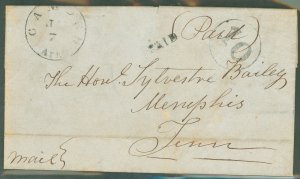 Paid
PAID
10
The Honl. Sylvestre Bailey
Memphis
Tenn
Mail